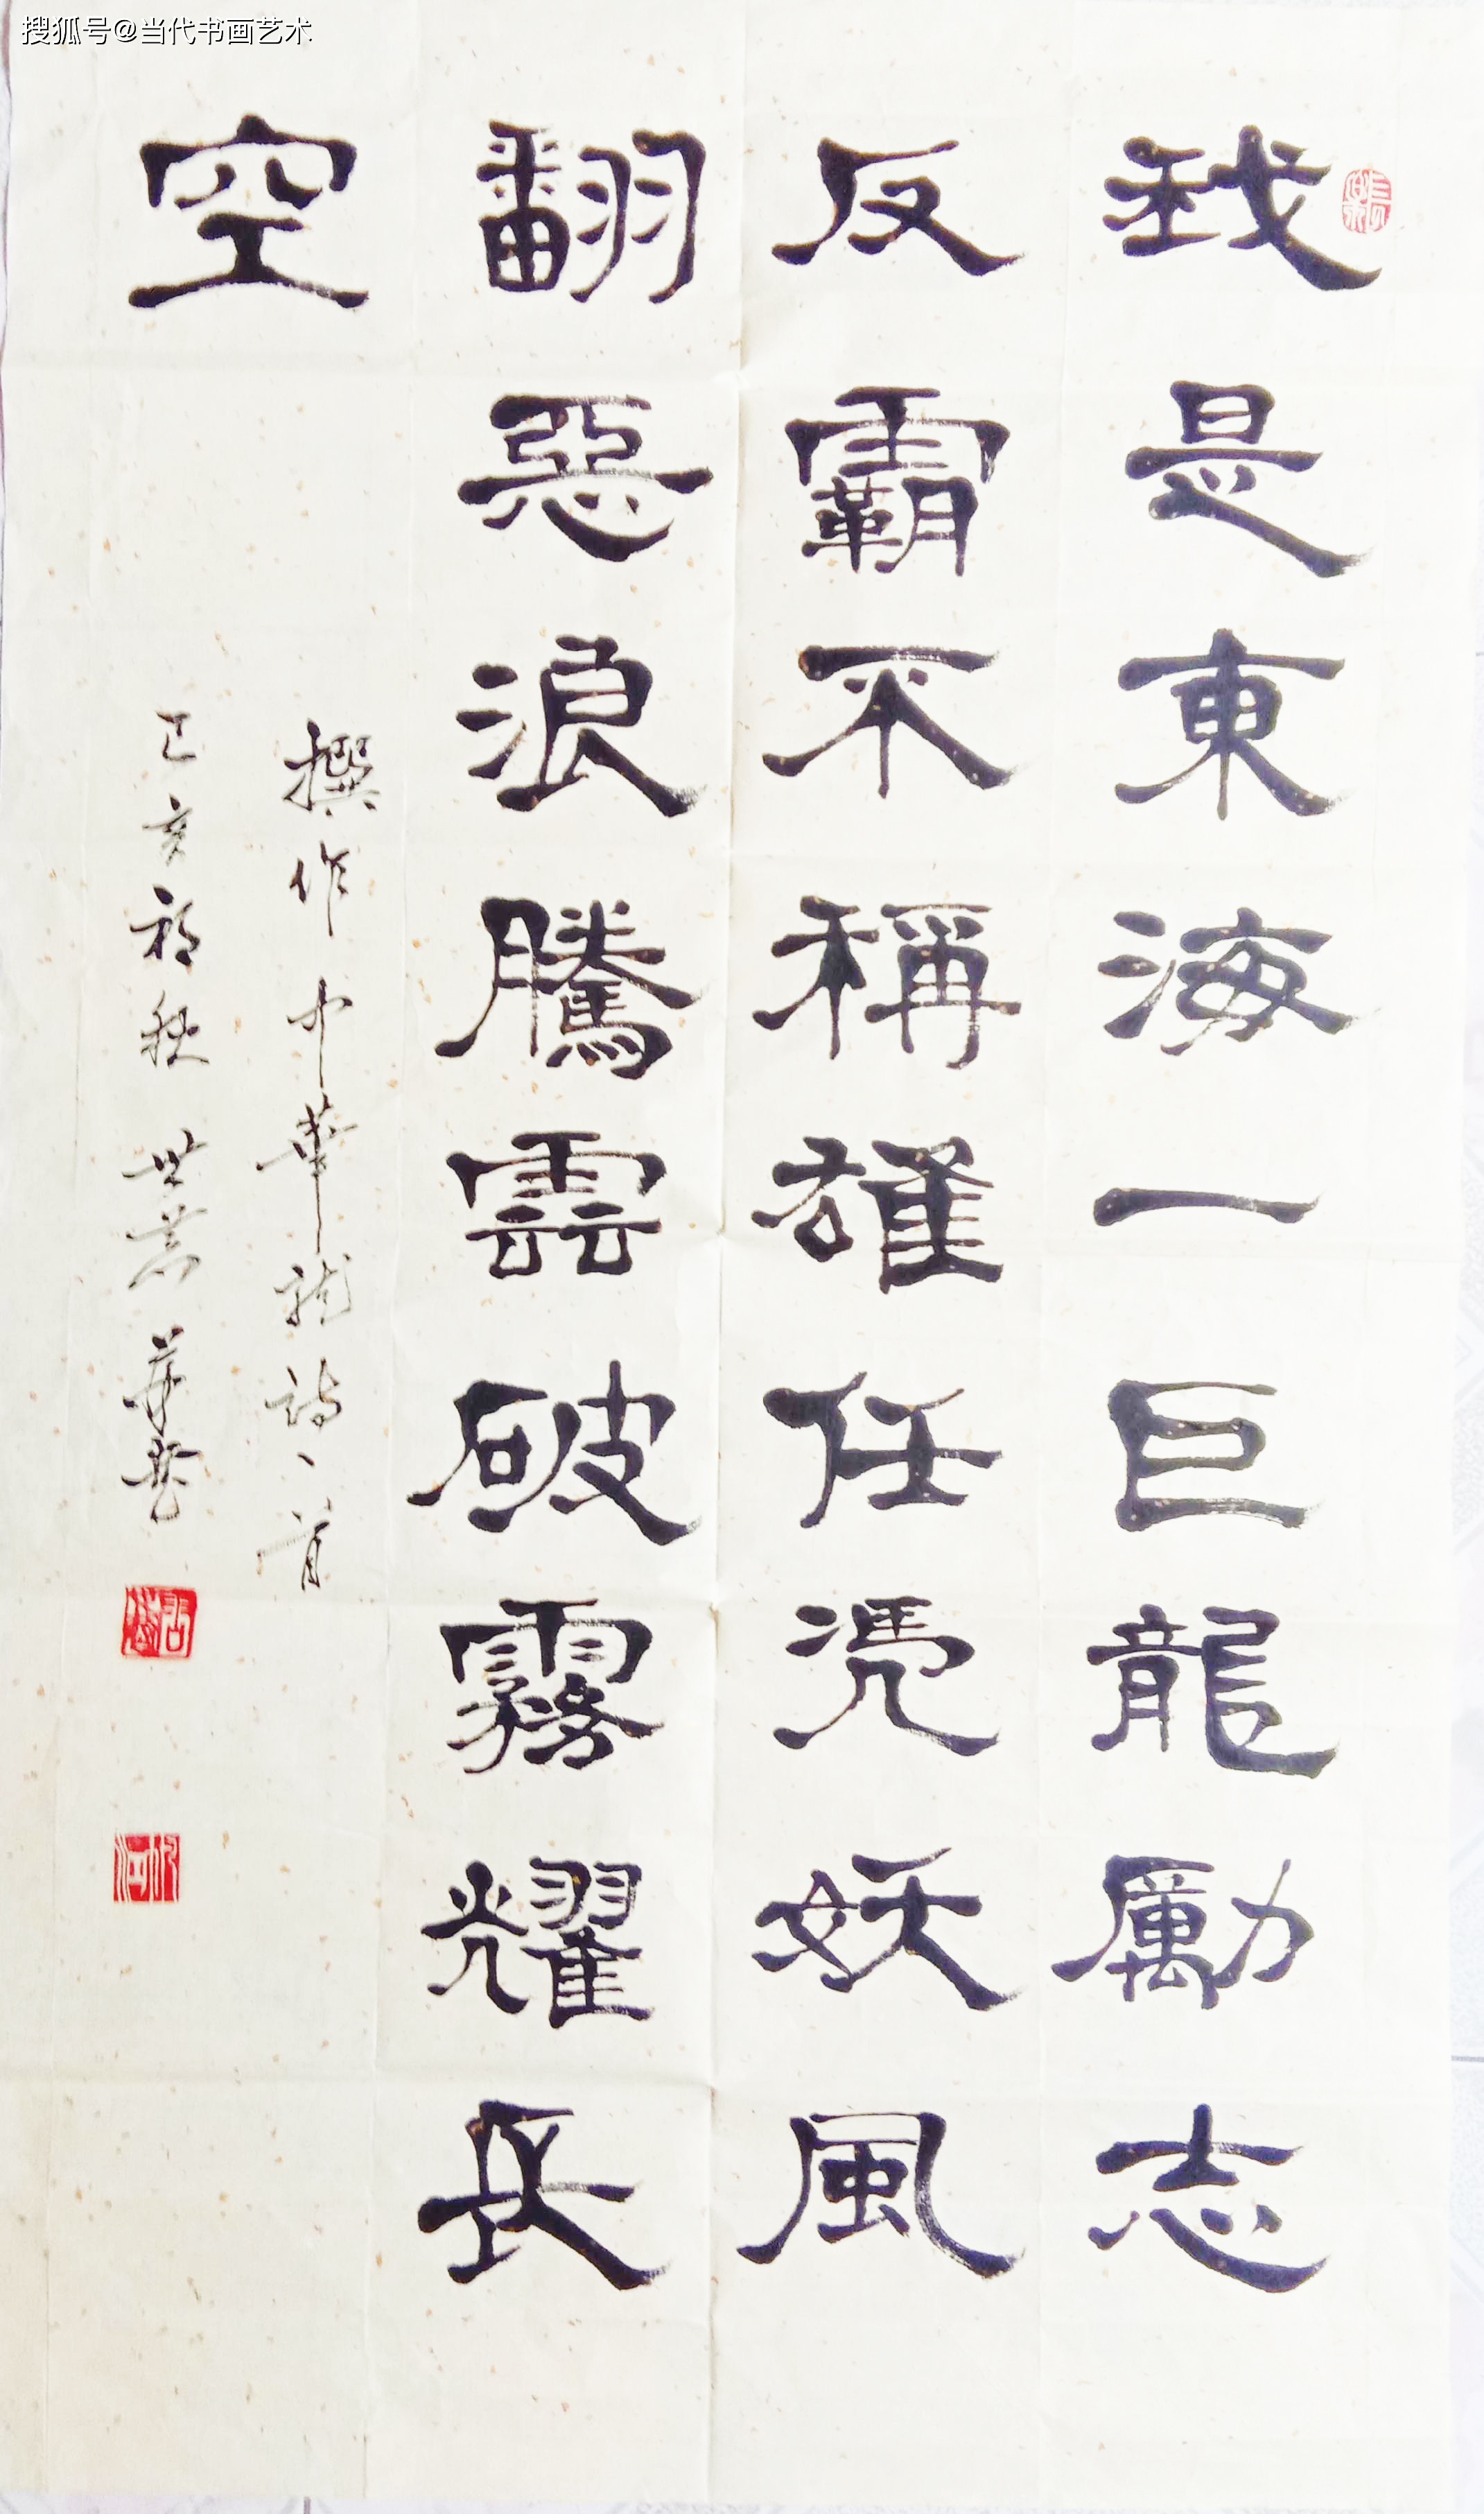 搜狐号@当代书画艺术
我是東海一巨龍勵志
反霸不稱雄任凭妖風
翻惡浪騰雲破霧耀長
空
撰作中華龍詩一首
己亥初秋 世